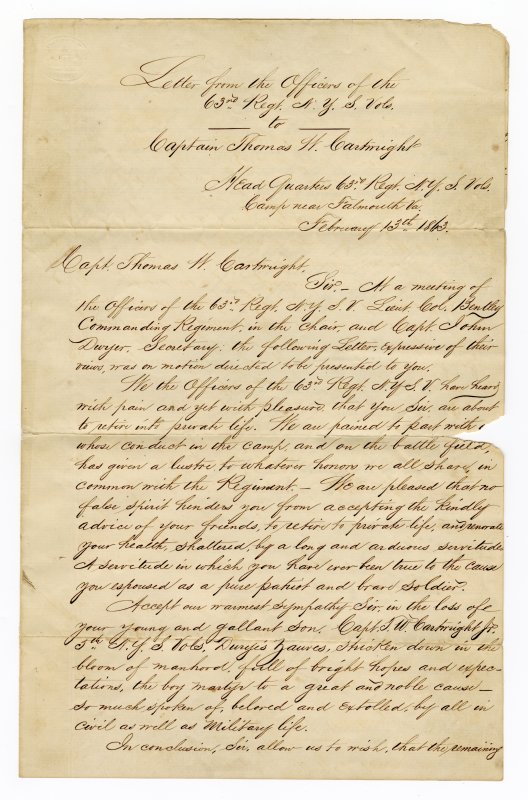 Letter from the Officers of the
63rd Regt. N. Y. S. Vols.
to
Captain Thomas W. Cartwright
Head Quarters 63rd Regt. N. Y. S. Vols.
Camp near Falmouth Va.
February 13th 1863.
Capt. Thomas W. Cartwright.
Sir— At a meeting of
the Officers of the 63rd Regt. N. Y. S. V. Lieut. Col. Bentley
Commanding Regiment, in the Chair, and Capt. John
Dwyer, Secretary: the following Letter, expressive of their
views, was on motion directed to be presented to you.
We the Officers of the 63rd Regt. N. Y. S. V. have heard
with pain and yet with pleasure, that you Sir, are about
to retire into private life. We are pained to part with
whose conduct in the camp, and on the battle field,
has given a lustre to whatever honors we all share, in
common with the Regiment.— We are pleased that no
false spirit hinders you from accepting the kindly
advice of your friends, to retire to private life, and renovate
your health, shattered, by a long and arduous servitude
A servitude in which you have ever been true to the cause
you espoused as a pure patriot and brave Soldier.
Accept our warmest sympathy Sir, in the loss of
your young and gallant son, Capt. T. W. Cartwright Jr.
5th N. Y. S. Vols. Zouaves, stricken down in the
bloom of manhood, full of bright hopes and expec-
tations, the boy martyr to a great and noble cause—
so much spoken of, beloved and extolled, by all in
civil as well as Military life.
In conclusion, Sir, allow us to wish, that the remaining